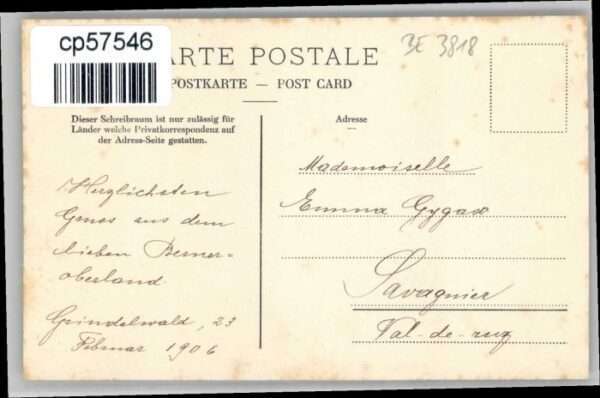 cp57546
ARTE POSTALE
BE 3818
POSTKARTE — POST CARD
Dieser Schreibraum ist nur zulässig für
Länder welche Privatkorrespondenz auf
der Adress-Seite gestatten.
Adresse
Herzlichsten
Gruss aus dem
lieben Berner-
oberland
Grindelwald, 23
Februar 1906
Mademoiselle
Emma Gygax
Savagnier
Val-de-ruz